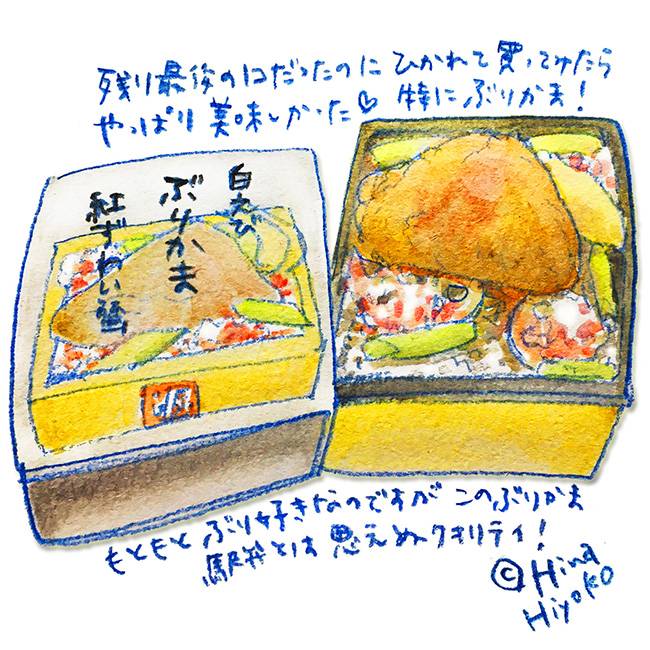 残り最後の1コだったのに ひかれて買ってみたら
やっぱり美味しかった♡ 特にぶりかま!
白えび
ぶりかま
紅ずわい蟹
もともとぶり好きなのですが このぶりかま
駅弁とは思えぬクオリティ!
©Hina
Hiyoko